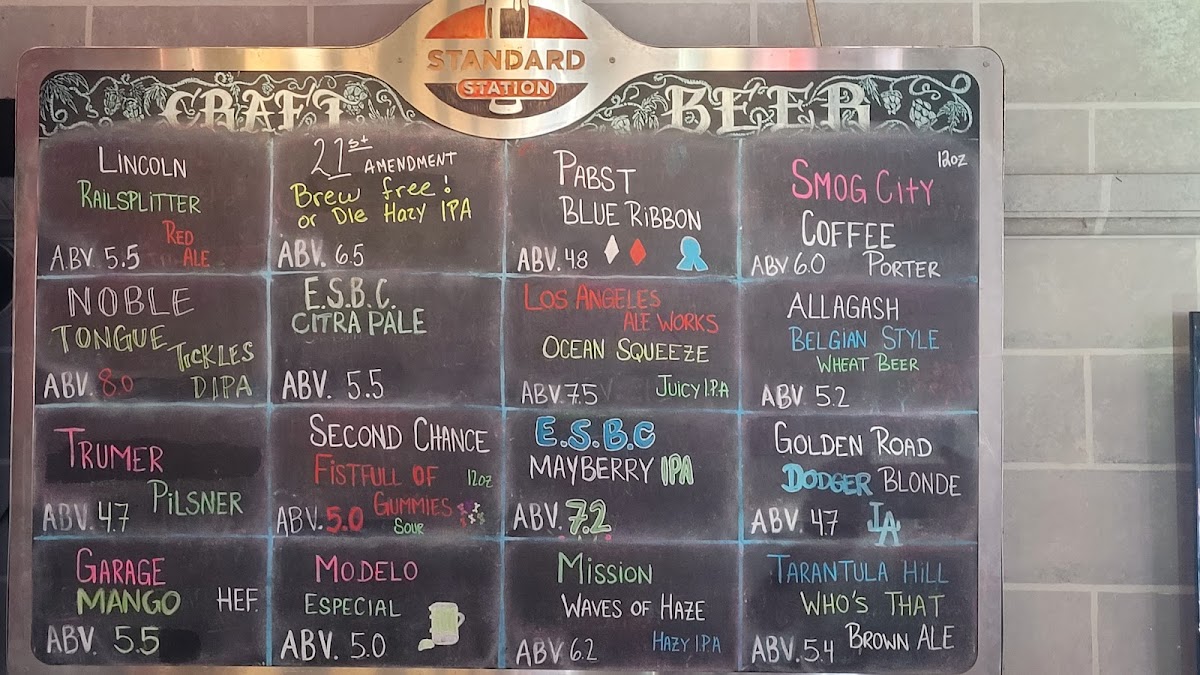 STANDARD
STATION
CRAFT BEER
LINCOLN
RAILSPLITTER
RED
ALE
ABV 5.5
21st AMENDMENT
Brew free!
or Die Hazy IPA
ABV. 6.5
PABST
BLUE RIBBON
ABV. 48
12oz
SMOG CITY
COFFEE
PORTER
ABV 6.0
NOBLE
TONGUE
TICKLES
DIPA
ABV. 8.0
E.S.B.C.
CITRA PALE
ABV. 5.5
LOS ANGELES
ALE WORKS
OCEAN SQUEEZE
JUICY I.P.A
ABV 7.5
ALLAGASH
BELGIAN STYLE
WHEAT BEER
ABV. 5.2
TRUMER
PILSNER
ABV. 4.7
SECOND CHANCE
FISTFULL OF
12oz
GUMMIES
SOUR
ABV. 5.0
E.S.B.C
MAYBERRY IPA
ABV. 7.2
GOLDEN ROAD
DODGER BLONDE
ABV. 47
LA
GARAGE
MANGO HEF.
ABV. 5.5
MODELO
ESPECIAL
ABV. 5.0
MISSION
WAVES OF HAZE
HAZY I.PA
ABV 6.2
TARANTULA HILL
WHO'S THAT
BROWN ALE
ABV. 5.4